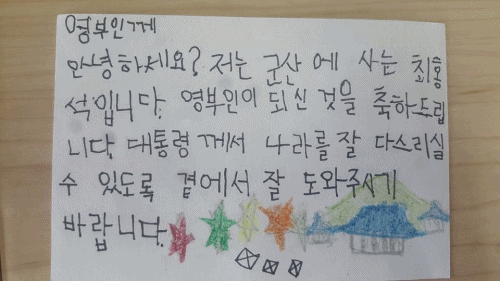 영부인께
안녕하세요? 저는 군산에 사는 최홍
석입니다. 영부인이 되신 것을 축하드립
니다. 대통령께서 나라를 잘 다스리실
수 있도록 곁에서 잘 도와주시기
바랍니다.